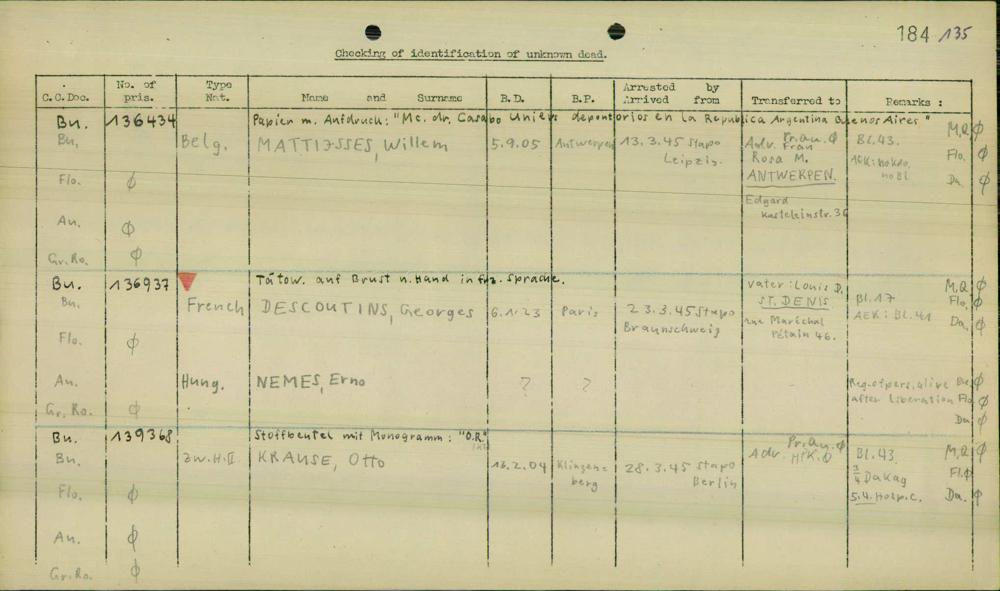 184 135
Checking of identification of unknown dead.
C.C.Doc. No. of pris. Type Nat. Name and Surname B.D. B.P. Arrested by Arrived from Transferred to Remarks :
Bu. 136434 Papier m. Aufdruck: "Mc. dr. Casabo Univers deportorios en la Republica Argentina Buenos Aires"
Bu. Belg. MATTIJSSES, Willem 5.9.05 Antwerpen 13.3.45 Stapo Leipzig. Pr.Au. φ Bl.43. M,Q φ
Adr. Frau Rosa M. Flo. φ
Flo. φ ANTWERPEN. no Bl Da. φ
Edgard
An. φ
Gr.Ro. φ
Bu. 136937 Tätow. auf Brust u. Hand in frz. Sprache. Vater: Louis D. M,Q φ
Bu. French DESCOUTINS, Georges 6.1.23 Paris 23.3.45 Stapo ST. DENIS Bl.17 Flo. φ
Braunschweig rue Maréchal AEK: Bl.41 Da. φ
Flo. φ Pétain 46.
An. Hung. NEMES, Erno ? ? - Reg. of pers. alive Bu. φ
Gr. Ro. φ after Liberation Flo. φ
Da. φ
Bu. 139368 Stoffbeutel mit Monogramm: "O.R."
Pr.Au. φ
Bu. zw.H.II KRAUSE, Otto 13.2.04 Klingenberg 28.3.45 Stapo Berlin Adr. φ Bl.43. M,Q φ
Dakag Fl. φ
Flo. φ 5.4. Hosp.C. Da. φ
An. φ
Gr.Ro. φ